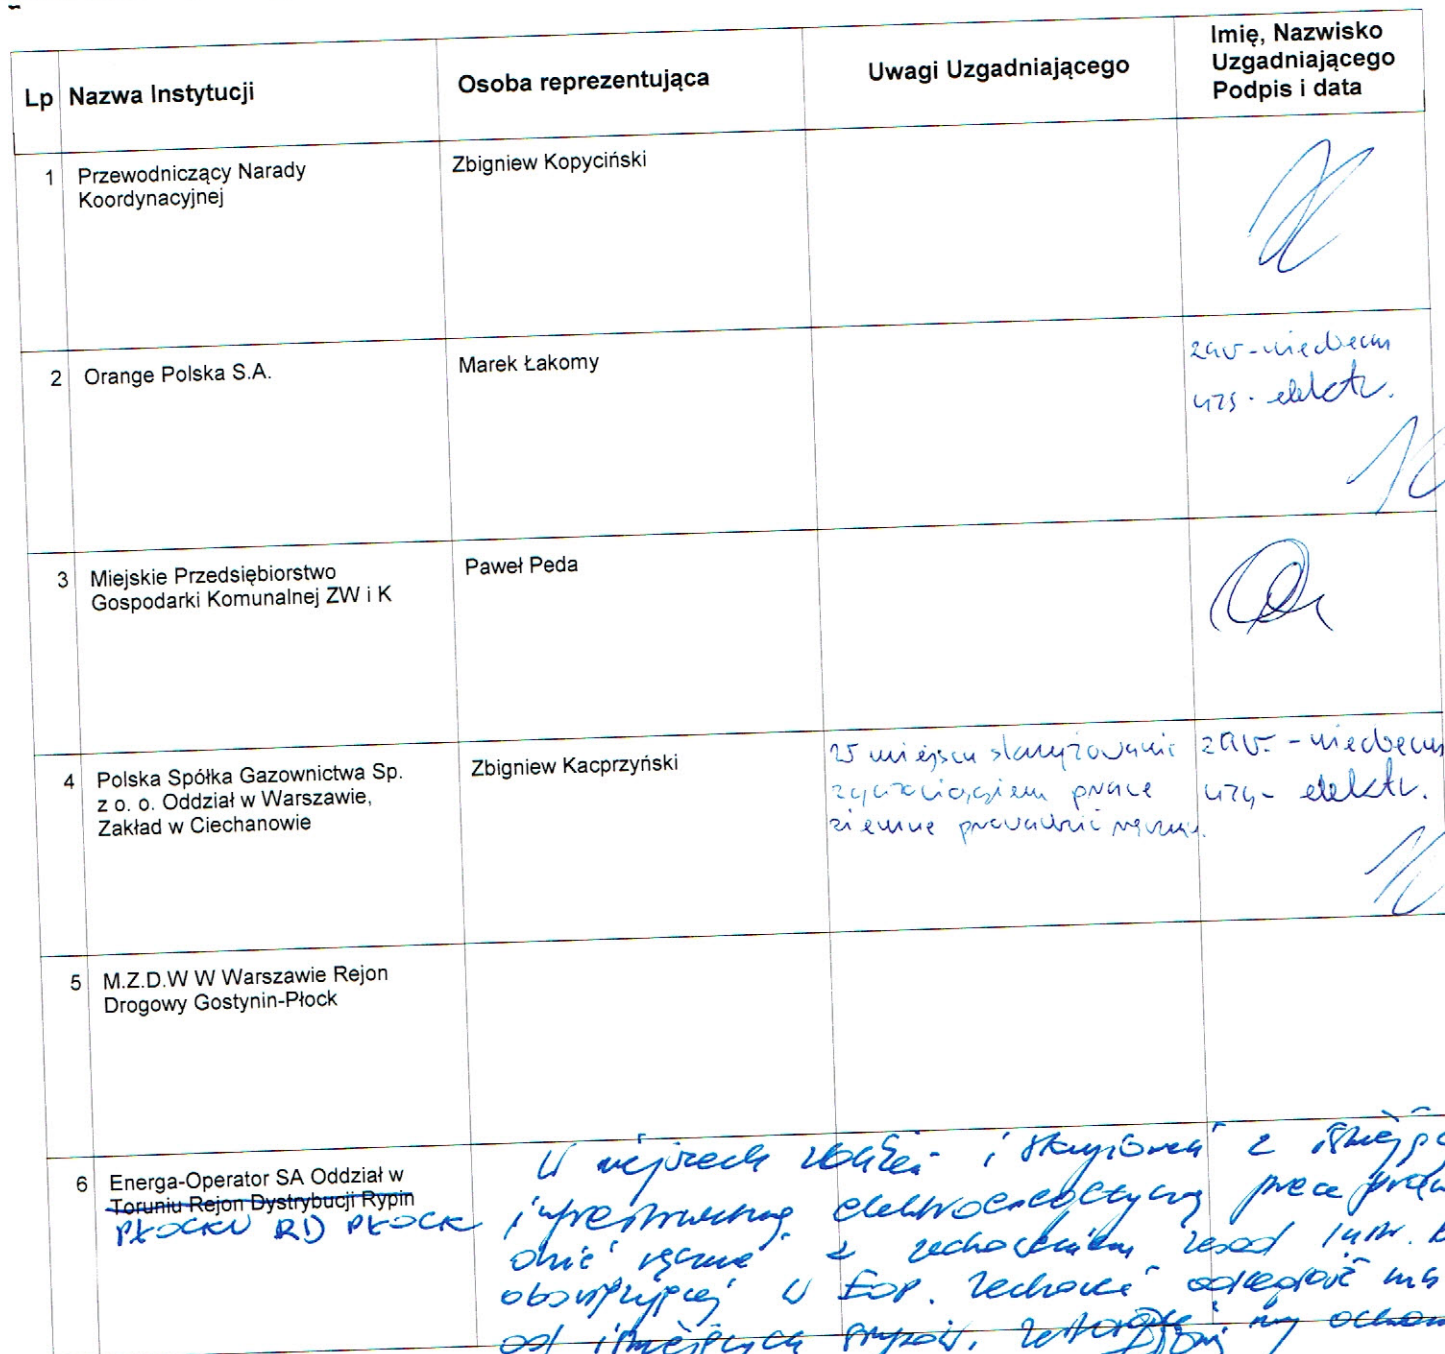 Lp Nazwa Instytucji Osoba reprezentująca Uwagi Uzgadniającego Imię, Nazwisko
Uzgadniającego
Podpis i data
1 Przewodniczący Narady
Koordynacyjnej
Zbigniew Kopyciński
2 Orange Polska S.A.
Marek Łakomy
zaw-niedbecny
uzg. elektr.
3 Miejskie Przedsiębiorstwo
Gospodarki Komunalnej ZW i K
Paweł Peda
4 Polska Spółka Gazownictwa Sp.
z o. o. Oddział w Warszawie,
Zakład w Ciechanowie
Zbigniew Kacprzyński
W miejscu skrzyżowania
prace
ziemne prowadzić ręcznie.
zaw.
uzg- elektr.
5 M.Z.D.W W Warszawie Rejon
Drogowy Gostynin-Płock
6 Energa-Operator SA Oddział w
Toruniu Rejon Dystrybucji Rypin
PŁOCKU RD PŁOCK
i skrzyżowań z
infrastrukturą elektroenergetyczną prace
ręcznie z zachowaniem zasad
obowiązującej w EOP. Zachować odległość
od istniejących słupów.